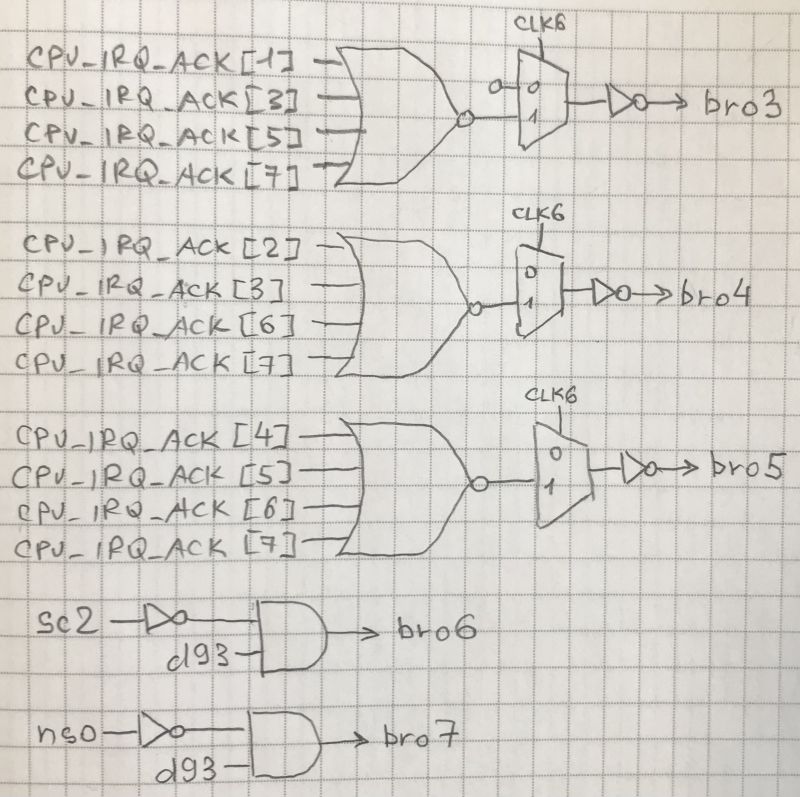 CLK6
CPU_IRQ_ACK [1]
CPU_IRQ_ACK [3]
CPU_IRQ_ACK [5]
CPU_IRQ_ACK [7]
0
1
bro3
CLK6
CPU_IRQ_ACK [2]
CPU_IRQ_ACK [3]
CPU_IRQ_ACK [6]
CPU_IRQ_ACK [7]
0
1
bro4
CLK6
CPU_IRQ_ACK [4]
CPU_IRQ_ACK [5]
CPU_IRQ_ACK [6]
CPU_IRQ_ACK [7]
0
1
bro5
sc2
d93
bro6
nso
d93
bro7